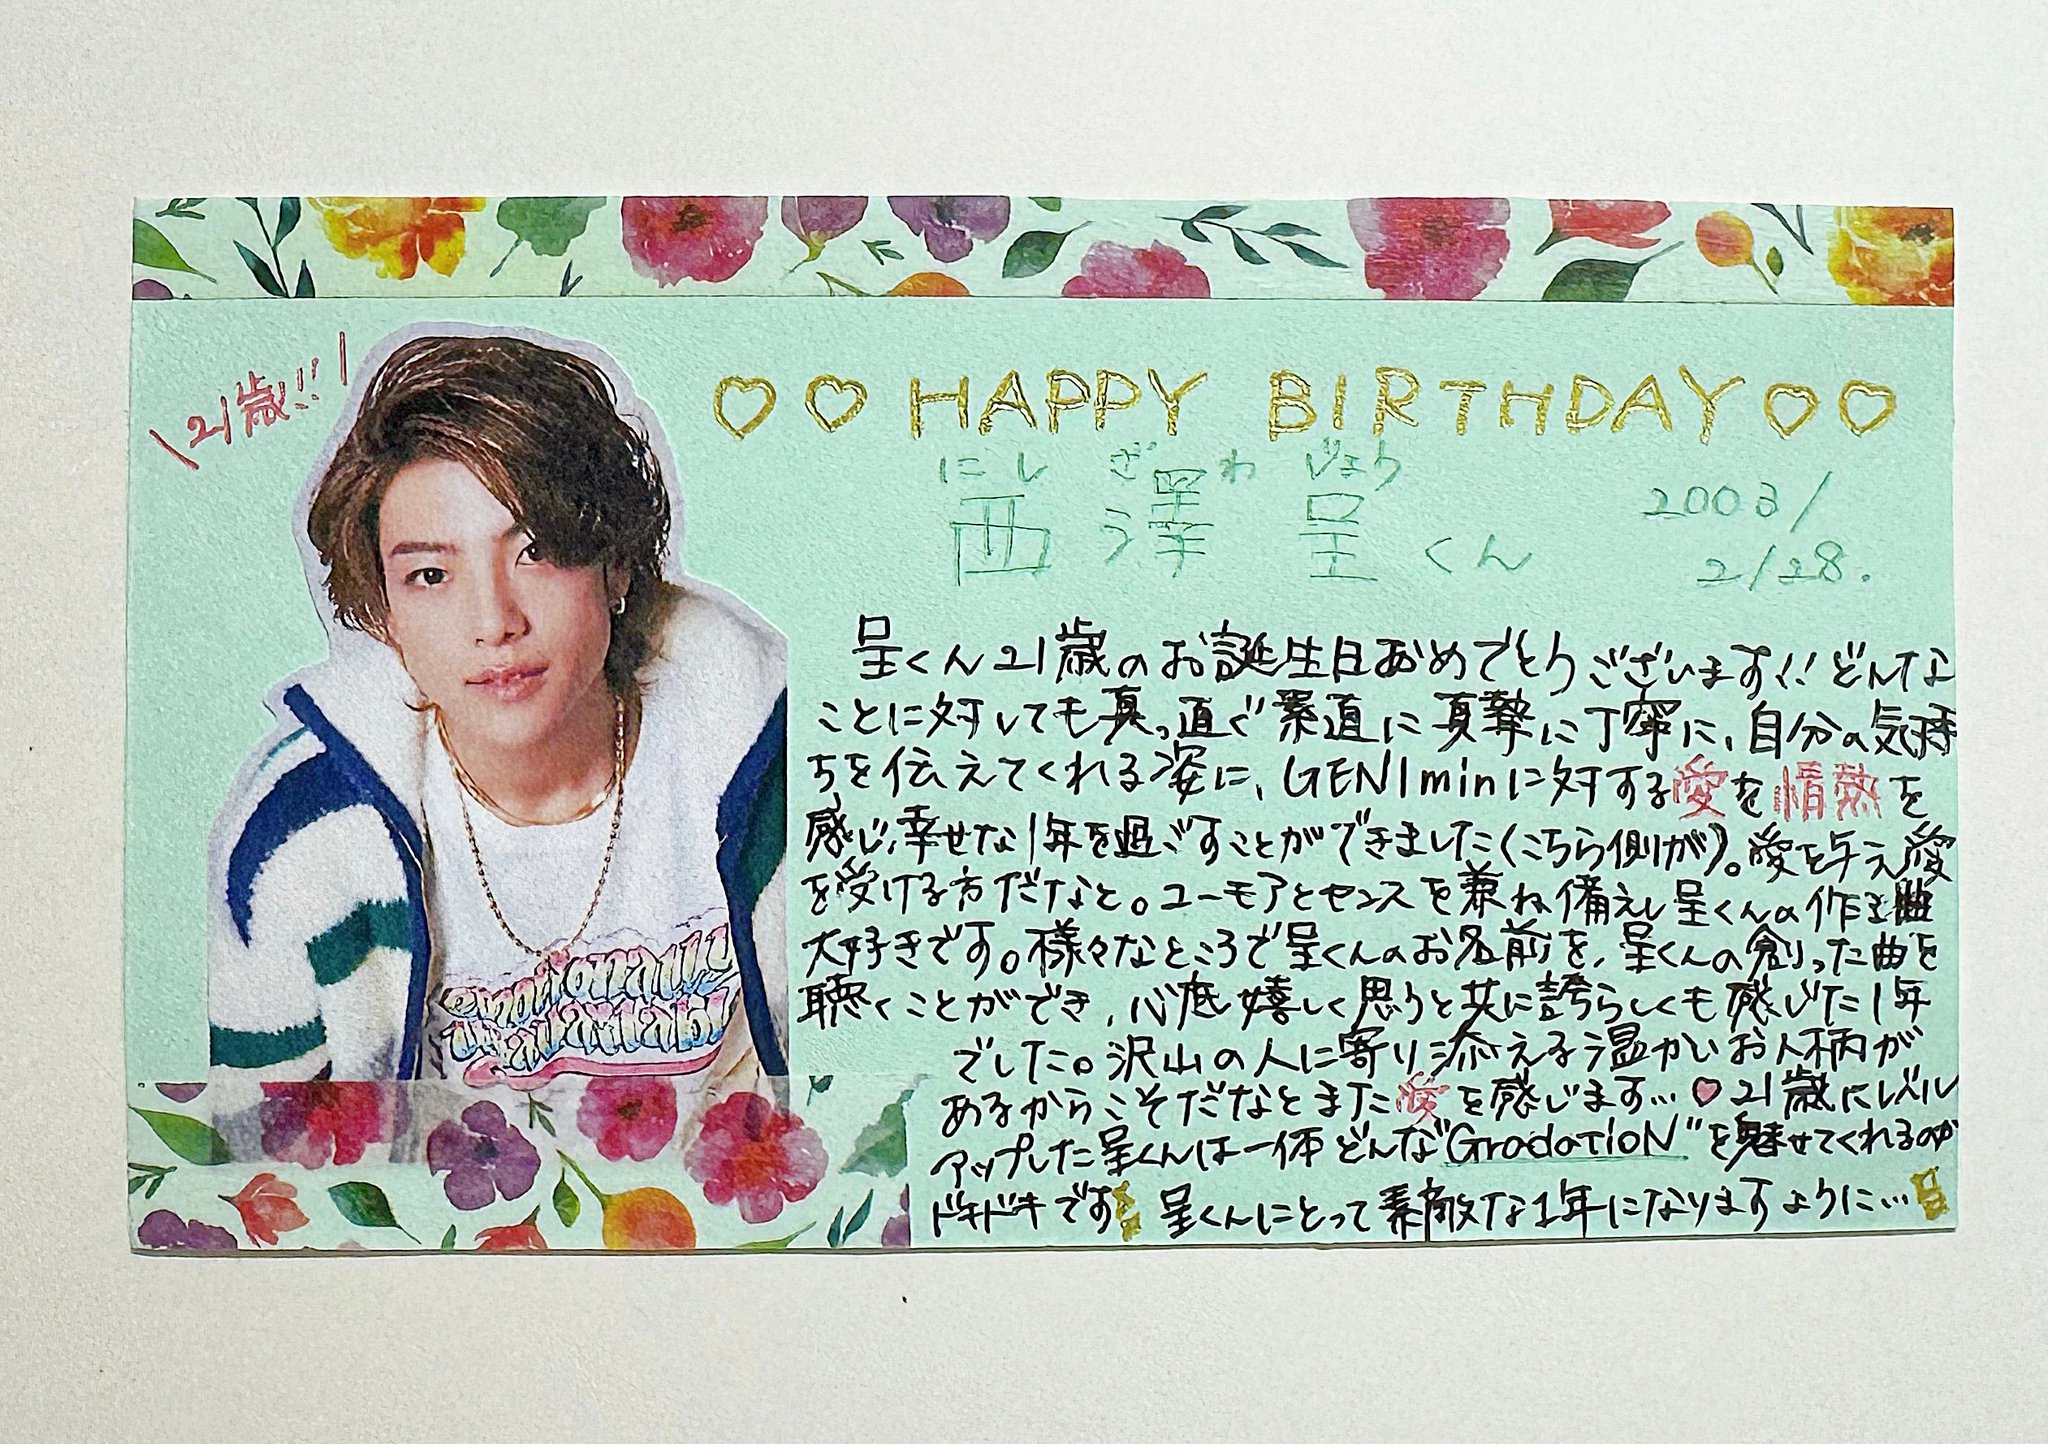 21歳!!
♡♡HAPPY BIRTHDAY♡♡
にし ざわ じょう
西澤 呈くん
2003/
2/28.
呈くん21歳のお誕生日おめでとうございます!! どんな
ことに対しても真っ直ぐ素直に真摯に丁寧に、自分の気持
ちを伝えてくれる姿に、GENIminに対する愛を情熱を
感じ、幸せな1年を過ごすことができました(こちら側が)。愛を与え愛
を受ける方だなと。ユーモアとセンスを兼ね備えし呈くんの作る曲
大好きです。様々なところで呈くんのお名前を、呈くんの創った曲を
聴くことができ、心底嬉しく思うと共に誇らしくも感じた1年
でした。沢山の人に寄り添える温かいお人柄が
あるからこそだなとまた愛を感じます…♡21歳にレベル
アップした呈くんは一体どんな"GradatioN"を魅せてくれるのか
ドキドキです 呈くんにとって素敵な1年になりますように…